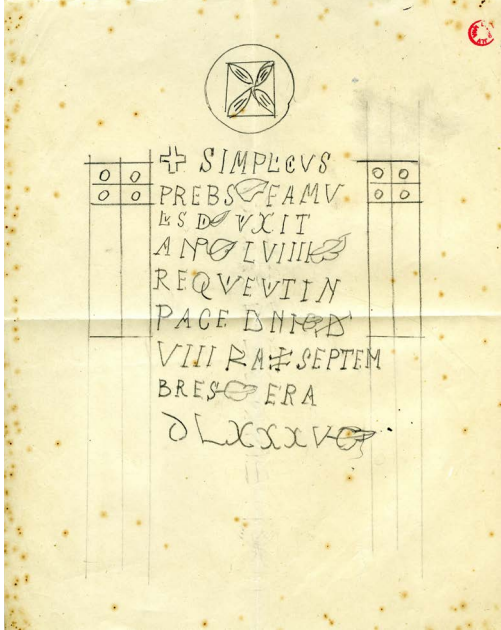 ✠ SIMPLICVS
PREBS FAMV
LVS DI VIXIT
AN LVIIII
REQVEVTIN
PACE DNI D
VIII KA SEPTEM
BRES ERA
DLXXXV